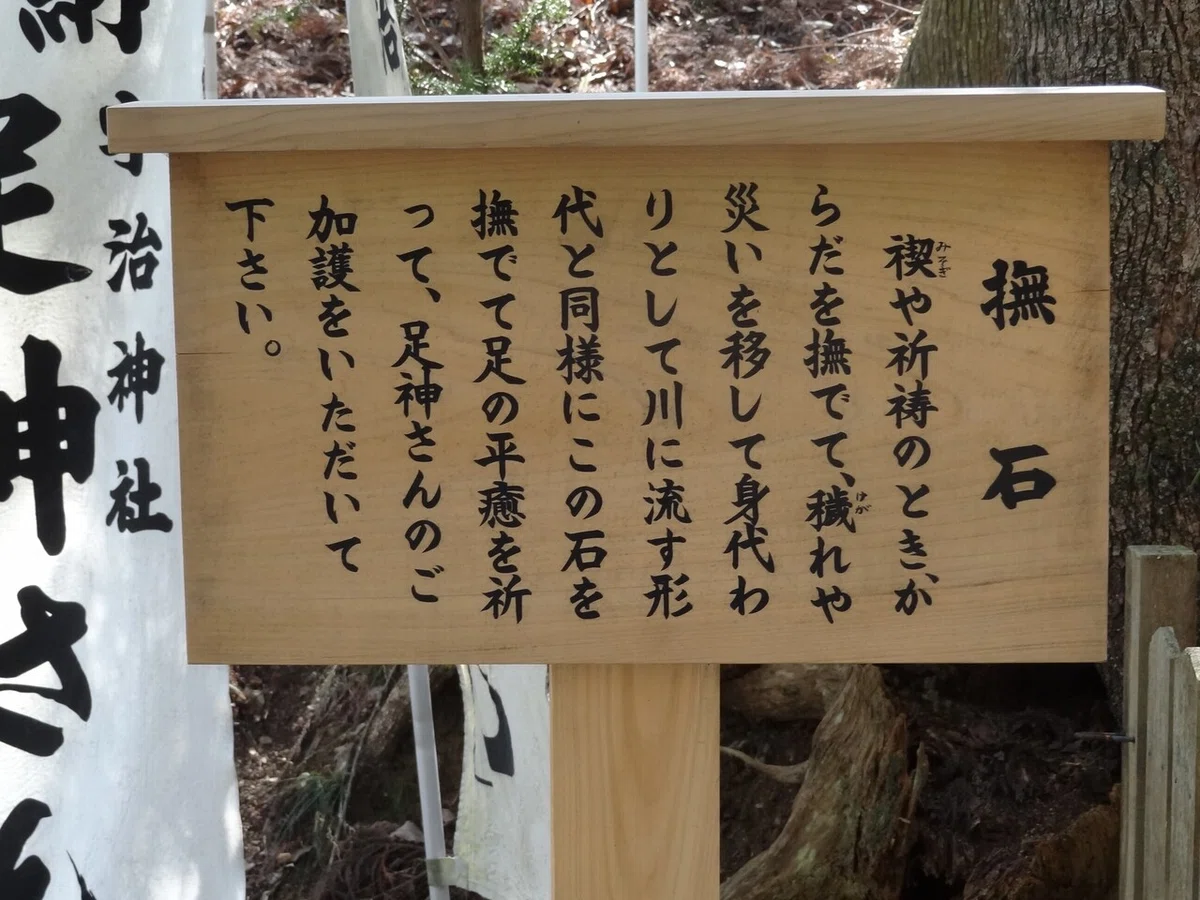 撫石
禊や祈祷のとき、か
らだを撫でて、穢れや
災いを移して身代わ
りとして川に流す形
代と同様にこの石を
撫でて足の平癒を祈
って、足神さんのご
加護をいただいて
下さい。
みそぎ
けが
宇治神社
足神さん